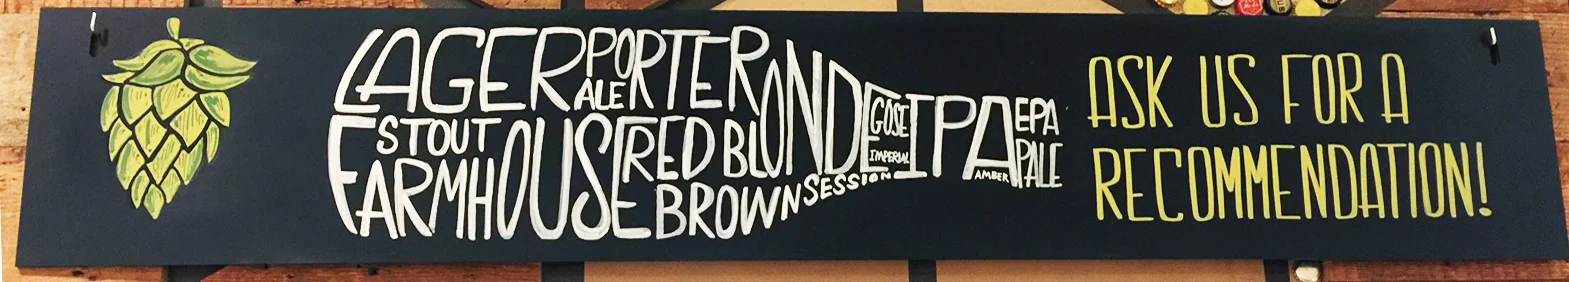 LAGER PORTER
ALE
STOUT
FARMHOUSE RED BLONDE
BROWN SESSION
GOSE
IMPERIAL
IPA
AMBER
EPA
PALE
ASK US FOR A
RECOMMENDATION!